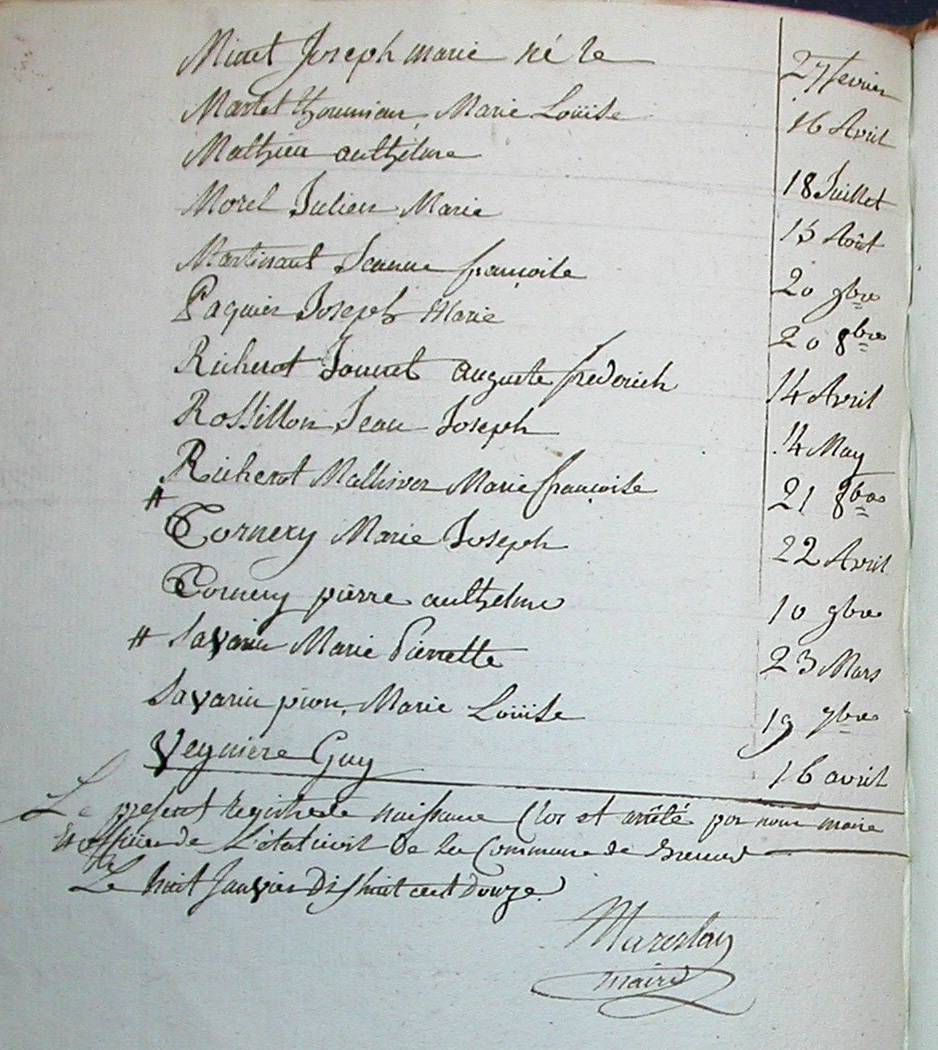 Minet Joseph marie né le 27 fevrier
Martet Marie Louise 16 Avril
Mathieu anthelme 18 Juillet
Morel Julien Marie 15 Août
Martinant Jeanne françoise 20 9bre
Paquier Joseph Marie 20 8bre
Richerot auguste frederich 14 Avril
Rossillon Jean Joseph 14 May
Richerot Marie françoise 21 8bre
# Cornery Marie Joseph 22 Avril
Cornery pierre anthelme 10 9bre
# Savarin Marie Pierrette 23 Mars
Savarin pion, Marie Louise 19 7bre
Veyniere Guy 16 avril
Le present registre de naissance Clos et arrêté par nous maire
et officier de L'état civil De la Commune de
Le huit Janvier Dix huit cent douze.
maire